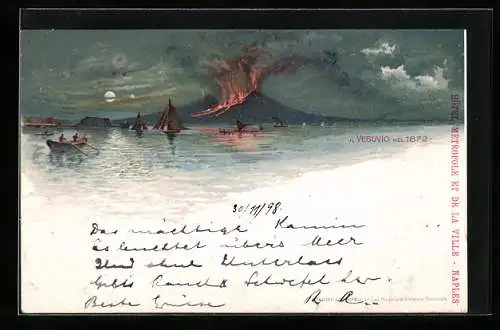 IL VESUVIO NEL 1872
HÔTEL MÉTROPOLE ET DE LA VILLE - NAPLES
30/11/98.
Das mächtige Kamin
Es leuchtet übers Meer
Und ohne Unterlass
Gibts Rauch & Schwefel her.
Beste Grüsse